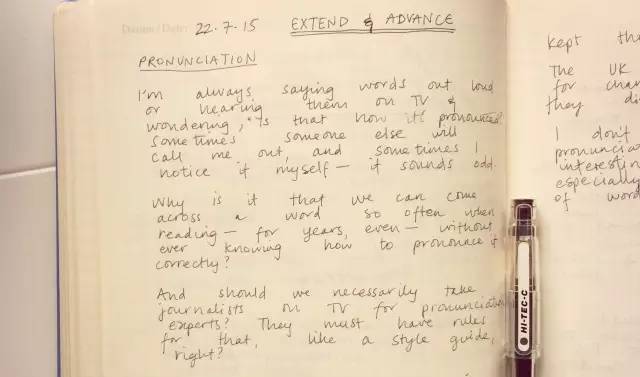 Datum / Date:
22.7.15
EXTEND & ADVANCE
PRONUNCIATION
I'm always saying words out loud
or hearing them on TV &
wondering, "Is that how it's pronounced
sometimes someone else will
call me out, and sometimes I
notice it myself — it sounds odd.
Why is it that we can come
across a word so often when
reading — for years, even — without
ever knowing how to pronounce it
correctly?
And should we necessarily take
journalists on TV for pronunciation
experts? They must have rules
for that, like a style guide,
right?
kept the
The UK
for chan
they di
I don't
pronuncia
interestin
especially
of word
HI-TEC-C